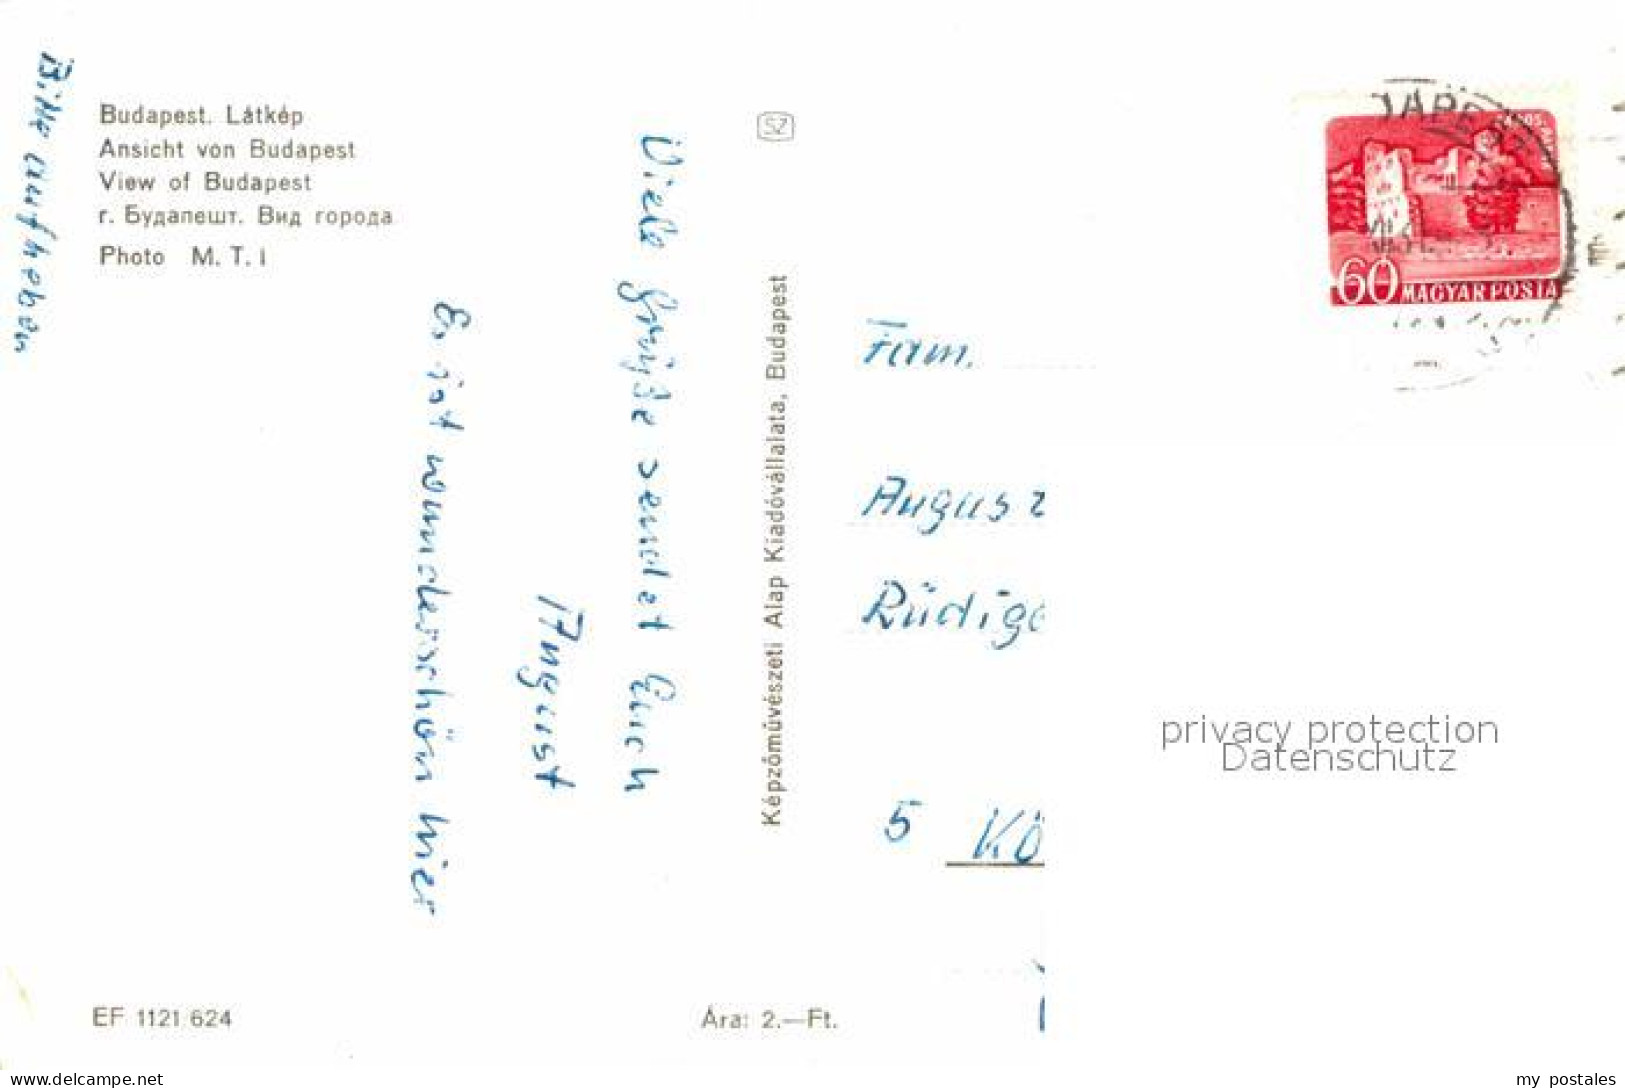 Bitte aufheben
Budapest. Látkép
Ansicht von Budapest
View of Budapest
г. Будапешт. Вид города
Photo M. T. I
SZ
Viele Grüße sendet Euch
August
Es ist wunderschön hier
Képzőművészeti Alap Kiadóvállalata, Budapest
60 MAGYAR POSTA
Fam.
Augus
Rüdige
5 Kö
privacy protection
Datenschutz
EF 1121 624
Ára: 2.—Ft.
www.delcampe.net
my_postales